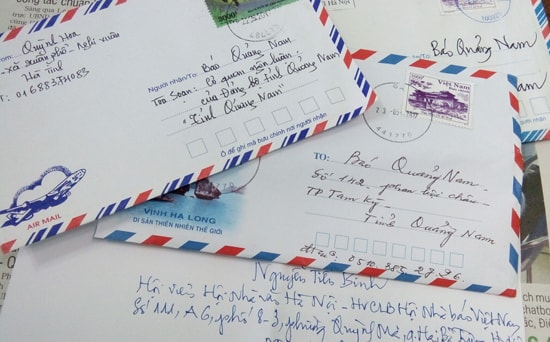 Quỳnh Hoa
Hà Tĩnh
AIR MAIL
Người nhận/To:
Báo Quảng Nam
Toà Soạn:
Cơ quan ngôn luận
của Đảng bộ tỉnh Quảng Nam
"Tỉnh Quảng Nam"
Ô để ghi mã bưu chính nơi người nhận
Báo Quảng Nam
Việt Nam
TO:
Báo Quảng Nam
Số 142 - Phan Bội Châu -
TP Tam Kỳ
Tỉnh Quảng Nam
VỊNH HẠ LONG
DI SẢN THIÊN NHIÊN THẾ GIỚI
Nguyễn Tiến Bình
Hội viên Hội Nhà văn Hà Nội - HVCLB Hội Nhà báo Việt Nam
Số 111, A6, phố 8-3, phường Quỳnh Mai, q. Hai Bà Trưng